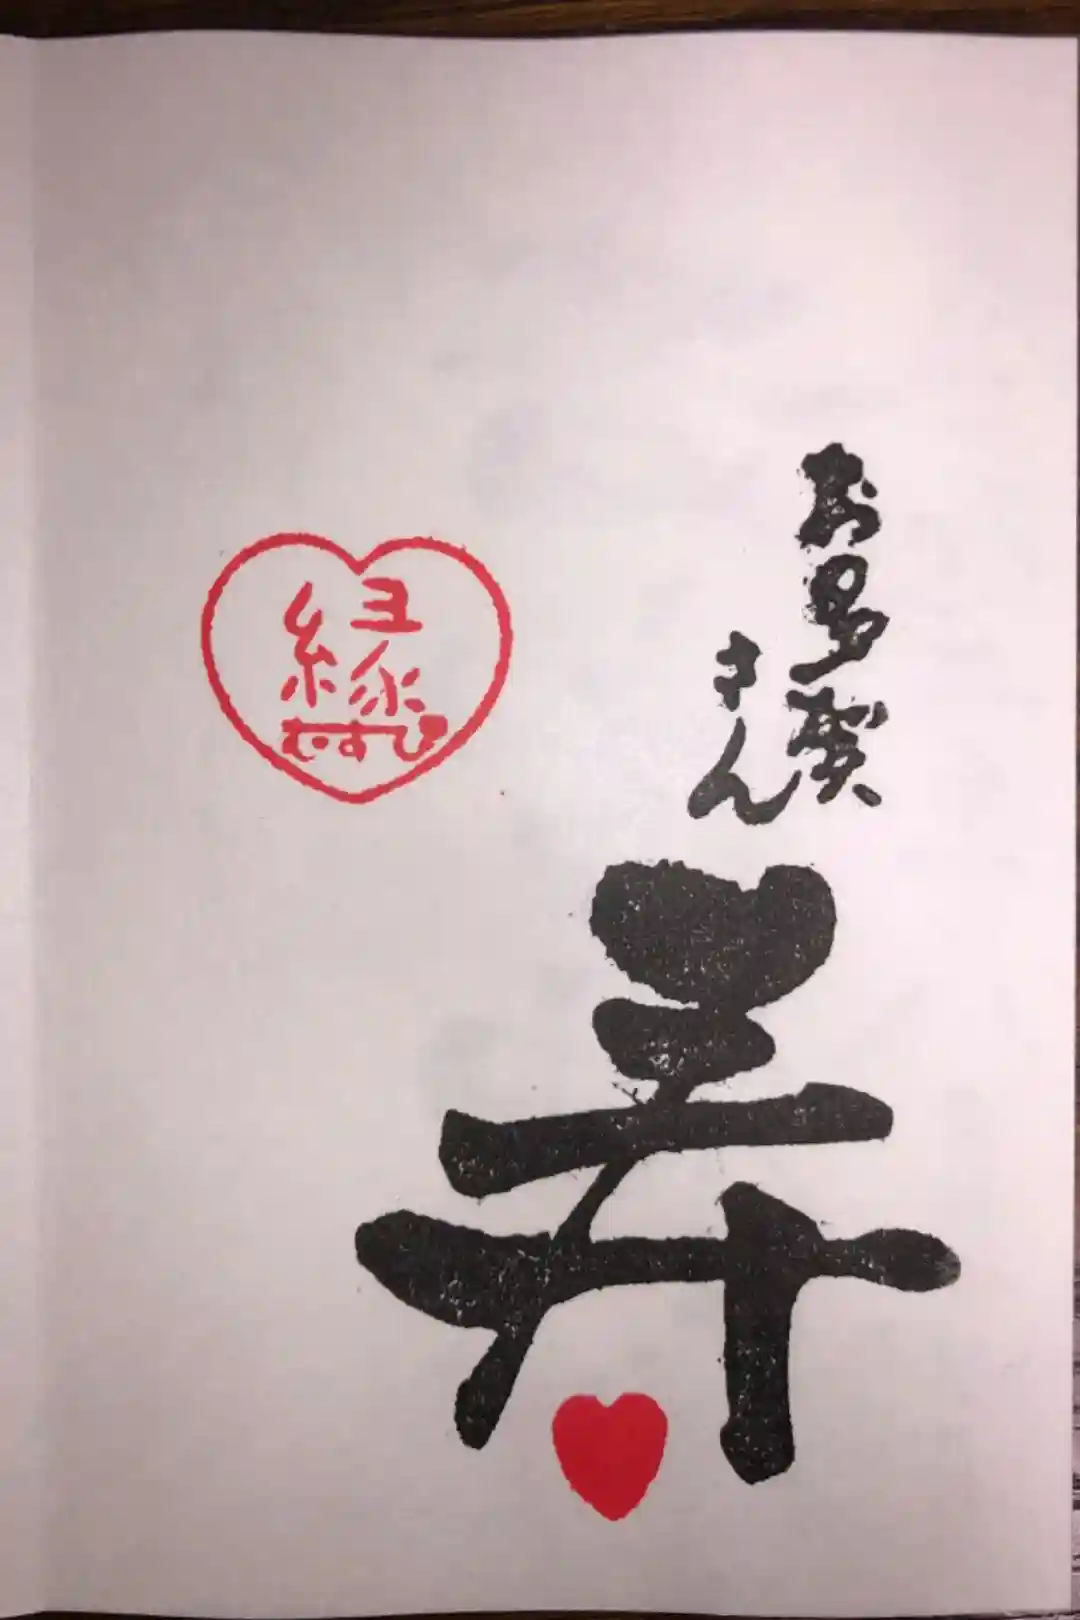 お多賀
さん
縁
むすび